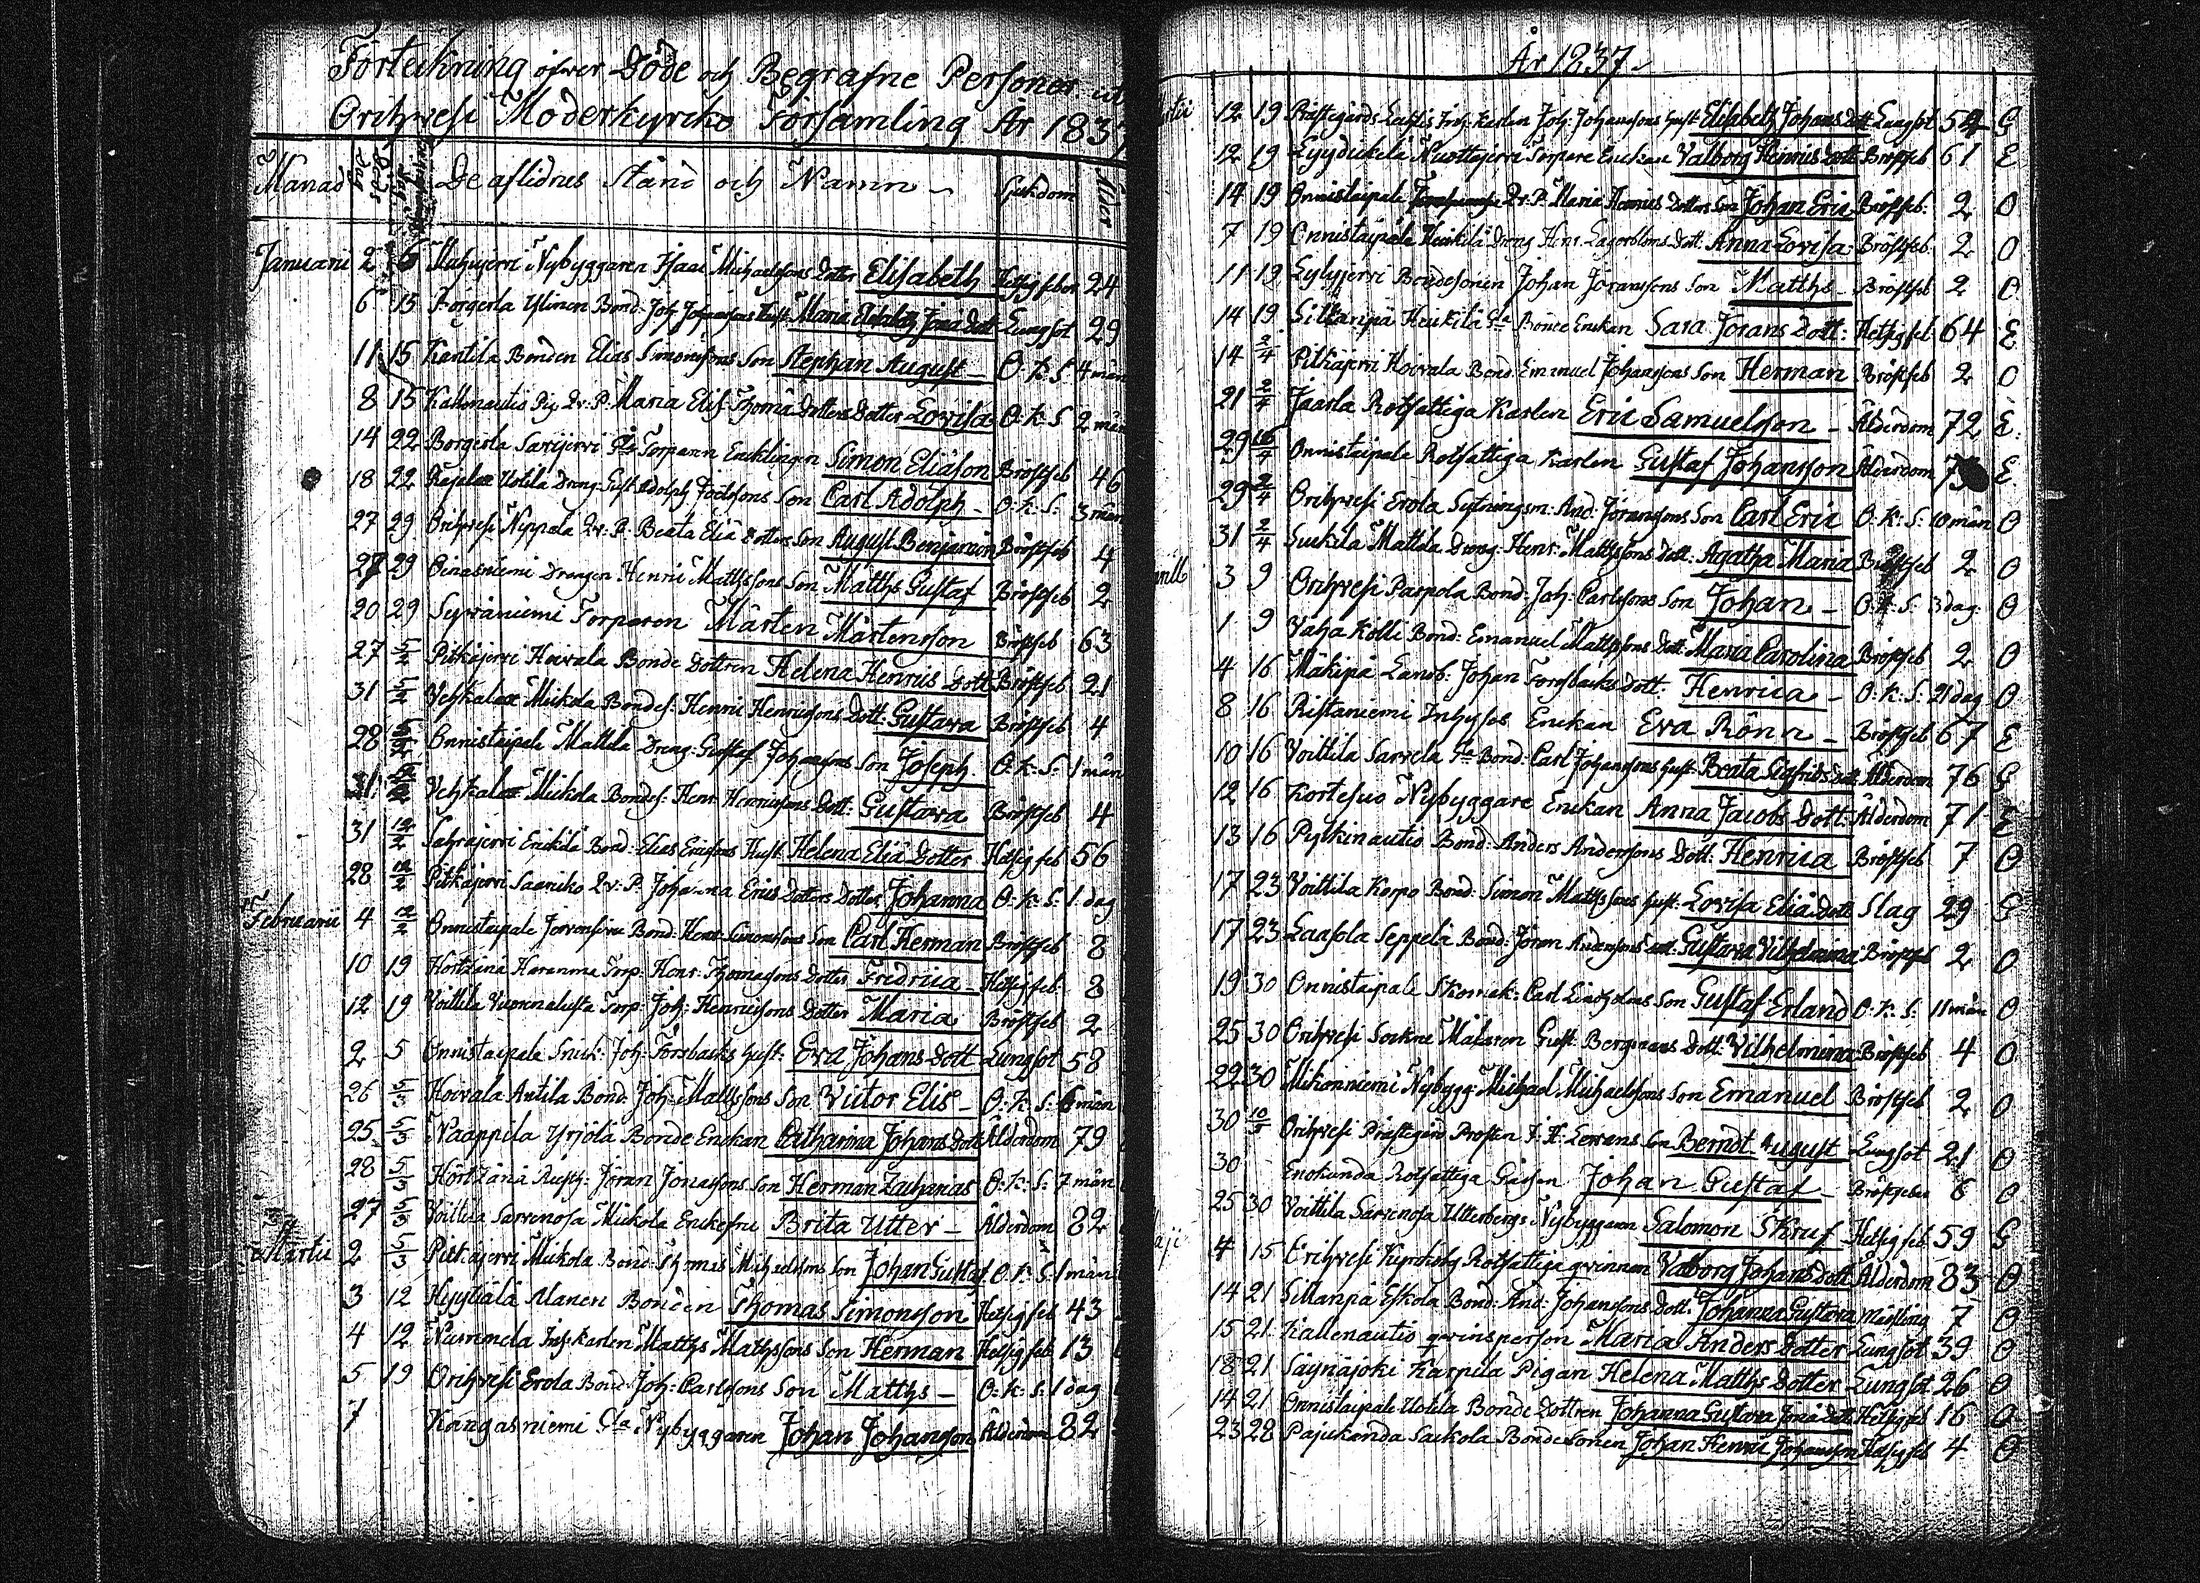 Förteckning öfwer Döde och Begrafne Personer uti
Orihwesi Moderkyrko Församling År 1837
Månad Döds Dag De aflidnes Stånd och Namn Sjukdom Ålder
Januarii 2 6 Nybyggaren Isaac Michaelssons Dotter Elisabeth Hetsig feber 24
6 15 Borgerla Ylinen Bond: Joh: Johanssons Hust: Maria Jona Dott: Lungsot 29
11 15 Kantila Bonden Elias Simonssons Son Stephan August O.K.S. 4 mån
8 15 Kallonautio Pig. Qv: P. Maria Elis: Thoma Dotters Dotter Lovisa O.K.S 2 mån
14 22 Borgerla Sarijerwi Torparen Encklingen Simon Eliäson Bröstfeb 46
18 22 Uotila Dreng: Gust: Adolph Son Carl Adolph O.K.S: 3 mån
27 29 Orihwesi Nyppälä Qv: P: Beata Eliä Dotters Son August Benjamin Bröstfeb 4
27 29 Oinasniemi Drengen Henric Mathssons Son Matths Gustaf Bröstfeb 2
20 29 Sypräniemi Torparen Mårten Mårtensson Bröstfeb 63
27 5/2 Pitkäjerwi Hoivala Bonde Dottren Helena Henrics Dott: Bröstfeb 21
31 5/2 Vehkalax Mickola Bondes: Henric Henricssons Dott: Gustava Bröstfeb 4
28 5/2 Onnistaipale Mattila Dreng: Gustaf Johanssons Son Joseph O.K.S: 1 mån
31 12/2 Vehkalax Mickola Bondes: Henr: Henricssons Dott: Gustava Bröstfeb 4
31 12/2 Sahrajerwi Erickilä Bond: Elias Ericssons Hust: Helena Eliä Dotter Hetsig feb 56
28 12/2 Pitkäjerwi Saaniko Qv: P. Johanna Erics Dotters Dotter Johanna O.K.S: 1 dag
Februarii 4 12/2 Onnistaipale Bond: Henr: Simonssons Son Carl Herman Bröstfeb 8
10 19 Torp: Henr: Thomassons Dotter Fredrica Hetsig feb: 8
12 19 Voitila Torp: Joh: Henricssons Dotter Maria Bröstfeb 2
2 5 Onnistaipale Snick: Joh: Forsbacks Hust: Eva Johans Dott Lungsot 58
26 5/3 Hoivala Antila Bond: Joh: Mattssons Son Victor Elis O.K.S: 6 mån
25 5/3 Naappila Yrjölä Bonde Enckan Catharina Johans Dott Ålderdom 79
28 5/3 Jöran Jonassons Son Herman Zacharias O.K.S: 7 mån
27 5/3 Voitila Sarvenosa Mickola Brita Utter Ålderdom 82
Martii 2 5/3 Pitkäjerwi Mickola Bond: Thomas Michaelssons Son Johan Gustaf O.K.S: 1 mån
3 12 Hyytiälä Alanen Bonden Thomas Simonsson Hetsig feb 43
4 12 Karlen Matths Mathssons Son Herman Hetsig feb 13
5 19 Orihwesi Erola Bond: Joh: Carlssons Son Matths O.K.S: 1 dag
7 Kangasniemi Gla Nybyggaren Johan Johansson Ålderdom 82
År 1837
12 19 Karlen Joh: Johanssons Hust: Elisabeth Johans Dott: Lungsot 54 G
12 19 Torpare Enckan Valborg Henrics Dott: Bröstfeb 61 E
14 19 Onnistaipale Qv: P: Maria Henrics Dotters Son Johan Eric Bröstfeb: 2 O
7 19 Onnistaipale Heickilä Dreng Henr: Lagerbloms Dott: Anna Lovisa Bröstfeb 2 O
11 19 Bondesonen Johan Jöranssons Son Matths Bröstfeb 2 O
14 19 Heickilä Gla Bonde Enckan Sara Jörans Dott: Hetsig feb 64 E
14 2/4 Pitkäjerwi Hoivala Bond: Emanuel Johanssons Son Herman Bröstfeb 2 O
21 2/4 Jaarla Rotfattiga Karlen Eric Samuelsson Ålderdom 72 E
29 Onnistaipale Rotfattiga Karlen Gustaf Johansson Ålderdom E
29 2/4 Orihwesi Erola Sytningsm: And: Jöranssons Son Carl Eric O.K.S: 10 mån O
31 2/4 Suckila Mattila Dreng: Henr: Mattssons Dott: Agatha Maria Bröstfeb 2 O
3 9 Orihwesi Parpola Bond: Joh: Carlssons Son Johan O.K.S: 3 dag: O
1 9 Vaha Kolli Bond: Emanuel Mattssons Dott: Maria Carolina Bröstfeb 2 O
4 16 Mäkipä Landb: Johan Forssbacks Dott: Henrica O.K.S: 21 dag O
8 16 Ristaniemi Inhyses Enckan Eva Rönn Bröstfeb 67 E
10 16 Voitila Sarvela Gla Bond: Carl Johanssons Hust: Beata Sigfrids Dott: Ålderdom 76 G
12 16 Kortesuo Nybyggare Enckan Anna Jacobs Dott: Ålderdom 71 E
13 16 Pytkinautio Bond: Anders Anderssons Dott: Henrica Bröstfeb 7 O
17 23 Voitila Korpo Bond: Simon Matthssons Hust: Lovisa Eliä Dott: Slag 29 G
17 23 Laasola Seppelä Bond: Jöran Anderssons Dott: Gustava Vilhelmina Bröstfeb 2 O
19 30 Onnistaipale Skomak: Carl Lindholms Son Gustaf Erland O.K.S: 11 mån O
25 30 Orihwesi Sockne Målaren Gust: Bergmans Dott: Vilhelmina Bröstfeb 4 O
22 30 Mikonniemi Nybygg: Michael Michaelssons Son Emanuel Bröstfeb 2 O
30 10/5 Orihwesi Prästegård Prosten Son Berndt August Lungsot 21 O
30 Enokunda Rotfattiga Gåssen Johan Gustaf Bröstfeber 6 O
25 30 Voitila Sarvenosa Utterbergs Nybyggaren Salomon Skruf Hetsig feb 59 G
4 15 Orihwesi Rotfattiga qvinnan Valborg Johans Dott: Ålderdom 83 O
14 21 Eskola Bond: And: Johanssons Dott: Johanna Gustava Mässling 7 O
15 21 Kallenautio qvinsperson Maria Anders Dotter Lungsot 39 O
18 21 Säynäjoki Karpila Pigan Helena Matths Dotter Lungsot 26 O
14 21 Onnistaipale Uotila Bonde Dottren Johanna Gustava Hetsig feb 16 O
23 28 Pajukanda Sackola Bondesonen Johan Henric Johansson Hetsig feb 4 O